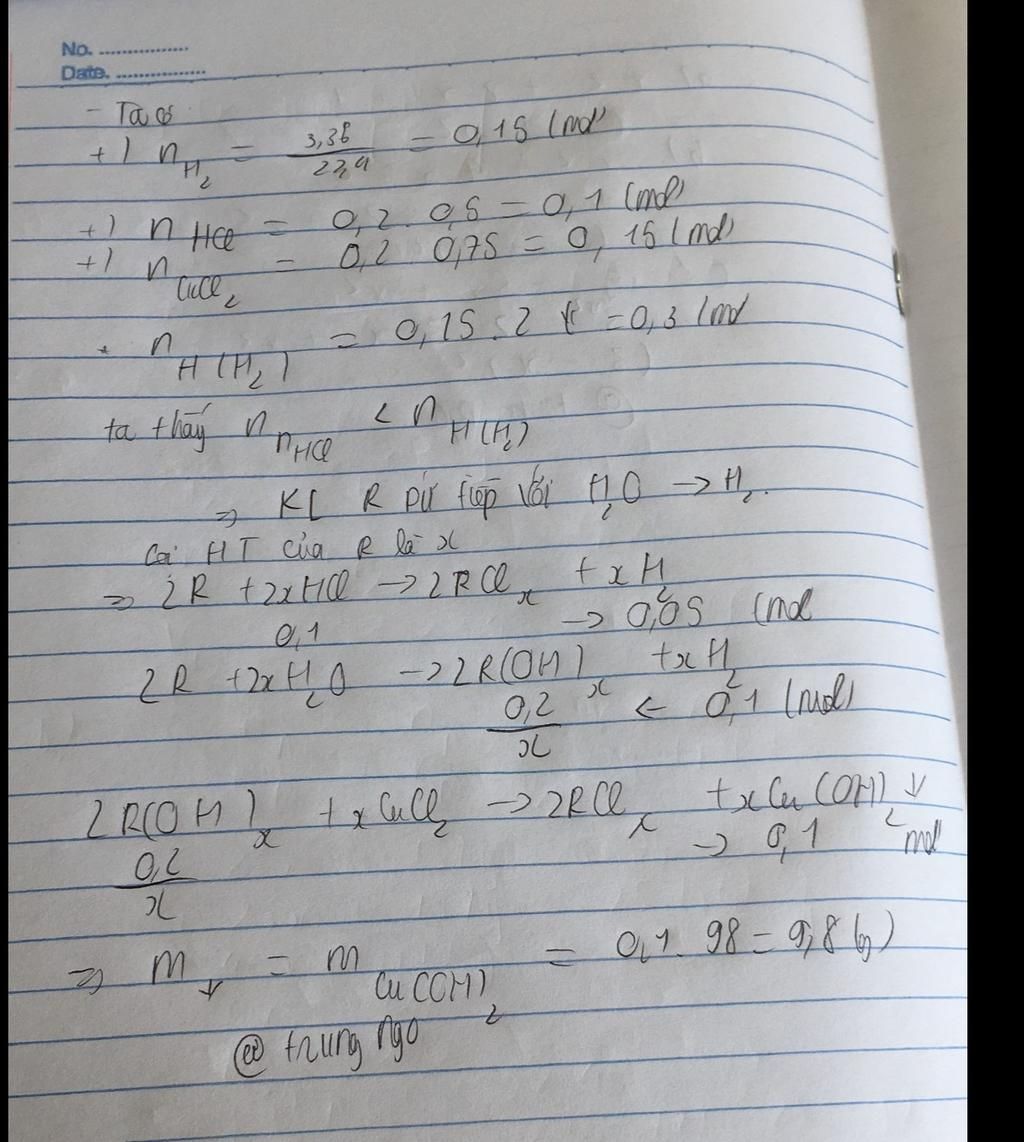 No. ................
Date. ................
- Ta có
+) n H₂ = 3,36/22,4 = 0,15 (mol)
+) n HCl = 0,2. 0,5 = 0,1 (mol)
+) n CuCl₂ = 0,2 0,75 = 0,15 (mol)
* n H(H₂) = 0,15 . 2 = 0,3 (mol
ta thấy n nHCl < n H(H₂)
=> KL R pứ tiếp với H₂O -> H₂.
Gọi HT của R là x
=> 2R + 2xHCl -> 2RClₓ + xH₂
0,1 -> 0,05 (mol
2R + 2xH₂O -> 2R(OH)ₓ + xH₂
0,2/x <- 0,1 (mol)
2R(OH)ₓ + xCuCl₂ -> 2RClₓ + xCu(OH)₂ ↓
0,2/x -> 0,1 mol
=> m↓ = m Cu(OH)₂ = 0,1. 98 = 9,8 (g)
@ trung ngo